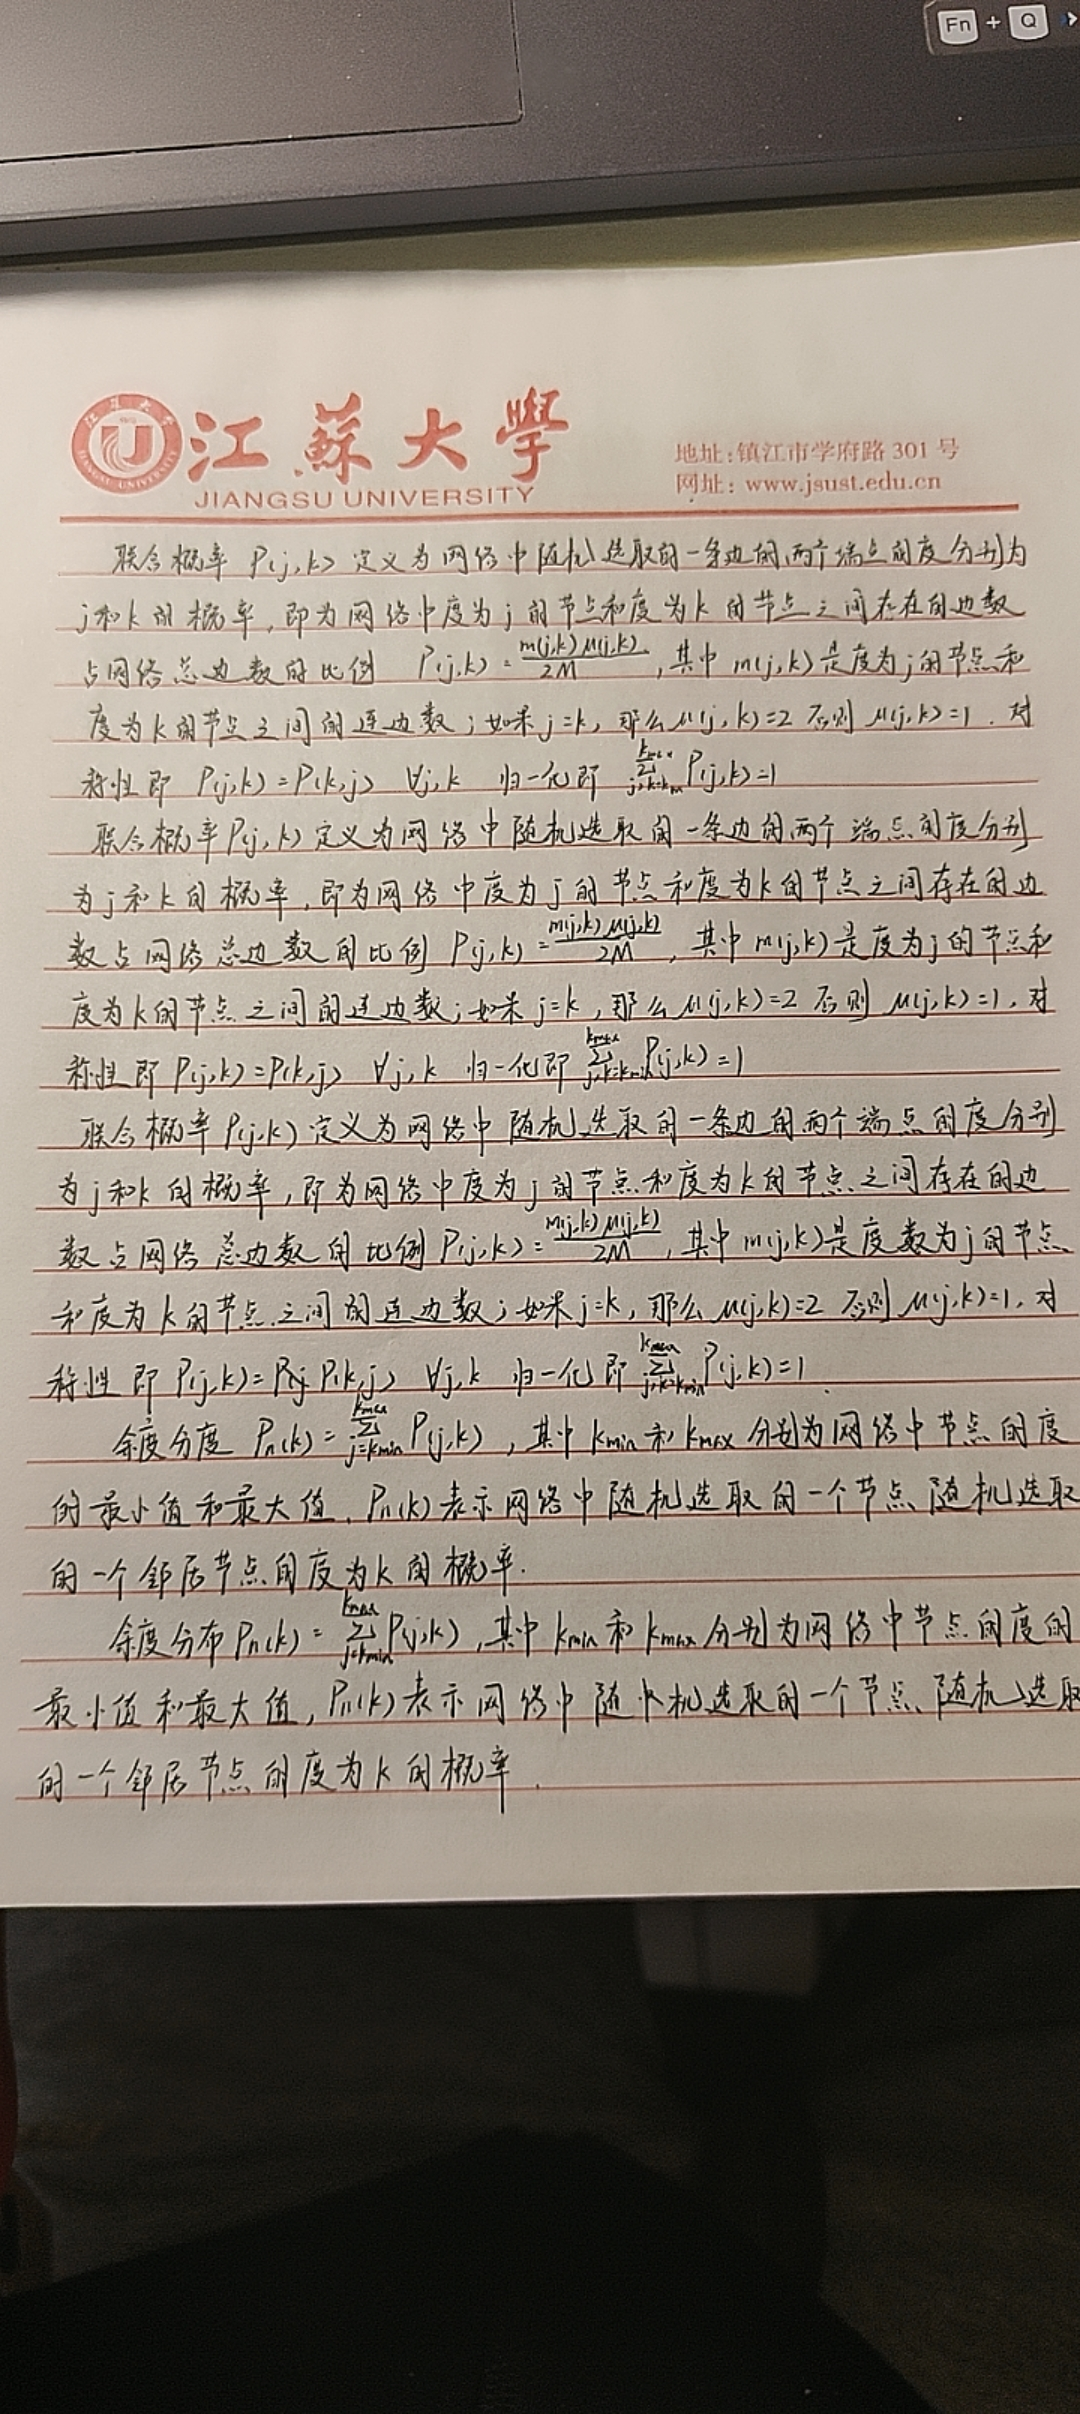 Fn + Q
江苏大学
JIANGSU UNIVERSITY
地址:镇江市学府路 301 号
网址: www.jsust.edu.cn
联合概率 P(j,k) 定义为网络中随机选取的一条边的两个端点的度分别为
j和k的概率,即为网络中度为j的节点和度为k的节点之间存在的边数
占网络总边数的比例 P(j,k)=m(j,k)μ(j,k)/2M,其中m(j,k)是度为j的节点和
度为k的节点之间的连边数;如果j=k,那么μ(j,k)=2 否则μ(j,k)=1.对
称性即 P(j,k)=P(k,j) ∀j,k 归一化即 ∑P(j,k)=1
联合概率P(j,k)定义为网络中随机选取的一条边的两个端点的度分别
为j和k的概率,即为网络中度为j的节点和度为k的节点之间存在的边
数占网络总边数的比例P(j,k)=m(j,k)μ(j,k)/2M,其中m(j,k)是度为j的节点和
度为k的节点之间的连边数;如果j=k,那么μ(j,k)=2 否则μ(j,k)=1.对
称性即P(j,k)=P(k,j) ∀j,k 归一化即 kmax∑j,k=kmin P(j,k)=1
联合概率P(j,k)定义为网络中随机选取的一条边的两个端点的度分别
为j和k的概率,即为网络中度为j的节点和度为k的节点之间存在的边
数占网络总边数的比例P(j,k)=m(j,k)μ(j,k)/2M,其中m(j,k)是度数为j的节点
和度为k的节点之间的连边数;如果j=k,那么μ(j,k)=2 否则μ(j,k)=1.对
称性即P(j,k)=P(j P(k,j) ∀j,k 归一化即 kmax∑j,k=kmin P(j,k)=1.
余度分度 Pn(k)= kmax∑j=kmin P(j,k),其中kmin和kmax分别为网络中节点的度
的最小值和最大值.Pn(k)表示网络中随机选取的一个节点随机选取
的一个邻居节点的度为k的概率.
余度分布Pn(k)= kmax∑j=kmin P(j,k),其中kmin和kmax分别为网络中节点的度的
最小值和最大值,Pn(k)表示网络中随机选取的一个节点随机选取
的一个邻居节点的度为k的概率.